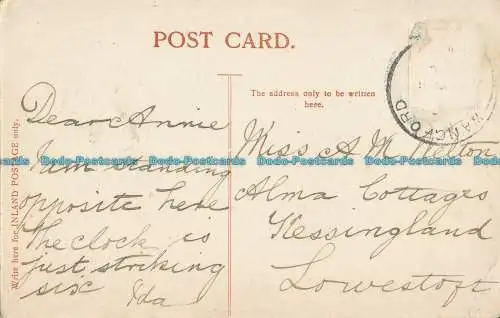 POST CARD.
The address only to be written
here.
Write here for INLAND POSTAGE only.
Dear Annie
I am standing
opposite here
the clock is
just striking
six
Ida
Miss A M
Alma Cottages
Kessingland
Lowestoft
WANGFORD
Dodo-Postcards Dodo-Postcards Dodo-Postcards Dodo-Postcards Dodo-Postcards